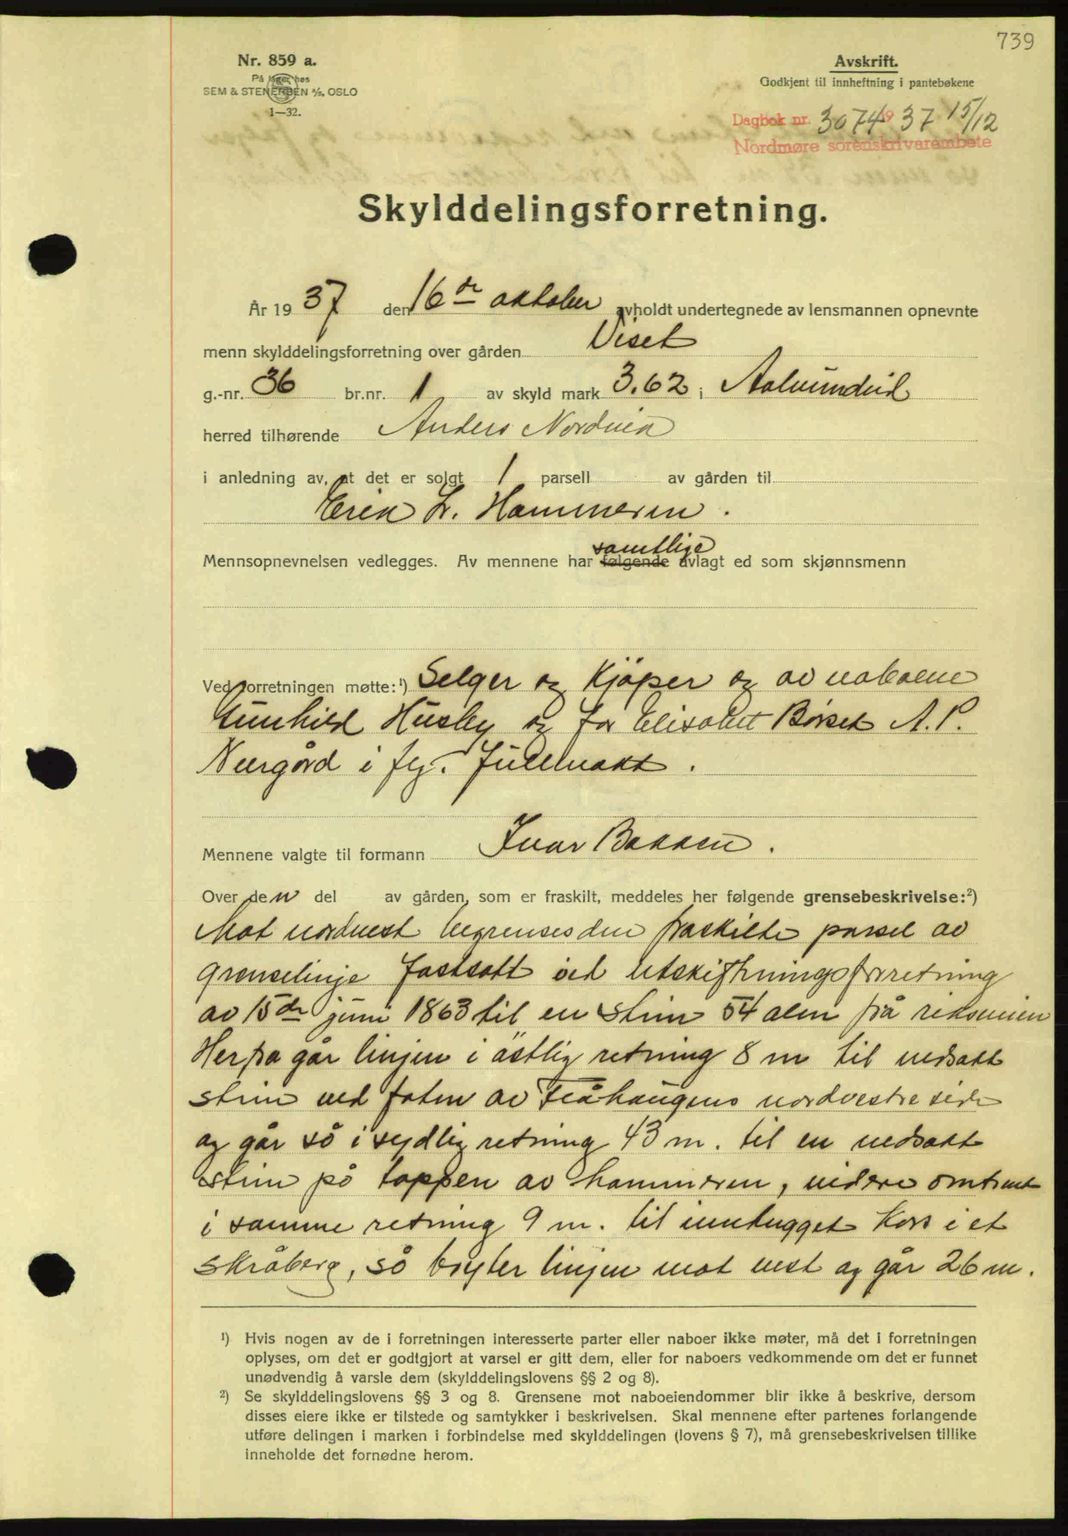 739
Nr. 859 a.
På lager hos
SEM & STENERSEN A/S, OSLO
1—32.
Avskrift.
Godkjent til innheftning i pantebøkene
Dagbok nr. 3074 19 37 15/12
Nordmøre sorenskrivarembete
Skylddelingsforretning.
År 19 37 den 16de oktober avholdt undertegnede av lensmannen opnevnte
menn skylddelingsforretning over gården Viset
g.-nr. 36 br.nr. 1 av skyld mark 3.62 i Aalvundeid
herred tilhørende Anders Nordvik
i anledning av, at det er solgt 1 parsell av gården til
Erik L. Hammeren.
Mennsopnevnelsen vedlegges. Av mennene har følgende samtlige avlagt ed som skjønnsmenn
Ved forretningen møtte:¹) Selger og Kjöper og av naboene
Gunhild Husby og for Elisabet Börset A. P.
Neergård i flg. fullmakt.
Mennene valgte til formann Ivar Bakken.
Over den del av gården, som er fraskilt, meddeles her følgende grensebeskrivelse:²)
Mot nordvest begrenses den fraskilte parsel av
grenselinje fastsatt ved utskiftningsforretning
av 15de juni 1863 til en stein 54 alen frå riksveien
Herfra går linjen i östlig retning 8 m til nedsatt
stein ved foten av nordvestre side
og går så i sydlig retning 43 m. til en nedsatt
stein på toppen av hammeren, videre omtrent
i samme retning 9 m. til innhugget kors i et
skråberg, så bryter linjen mot vest og går 26 m.
¹) Hvis nogen av de i forretningen interesserte parter eller naboer ikke møter, må det i forretningen
oplyses, om det er godtgjort at varsel er gitt dem, eller for naboers vedkommende om det er funnet
unødvendig å varsle dem (skylddelingslovens §§ 2 og 8).
²) Se skylddelingslovens §§ 3 og 8. Grensene mot naboeiendommer blir ikke å beskrive, dersom
disses eiere ikke er tilstede og samtykker i beskrivelsen. Skal mennene efter partenes forlangende
utføre delingen i marken i forbindelse med skylddelingen (lovens § 7), må grensebeskrivelsen tillike
inneholde det fornødne herom.